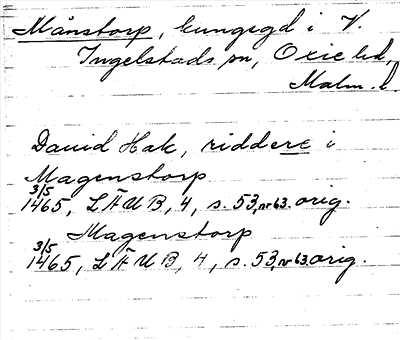 Månstorp, kungsgd i V.
Ingelstads sn, Oxie hd,
Malm. l.
David Hak, riddere i
Magenstorp
3/5
1465, LÄUB, 4, s. 53, nr 63. orig.
Magenstorp
3/5
1465, LÄUB, 4, s. 53, nr 63. orig.